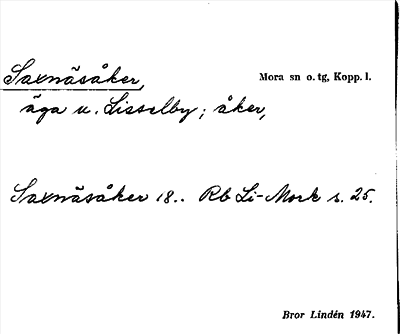 Saxnäsåker, Mora sn o. tg, Kopp. l.
äga u. Lisselby; åker,
Saxnäsåker 18.. Rb Li-Mork s. 25.
Bror Lindén 1947.